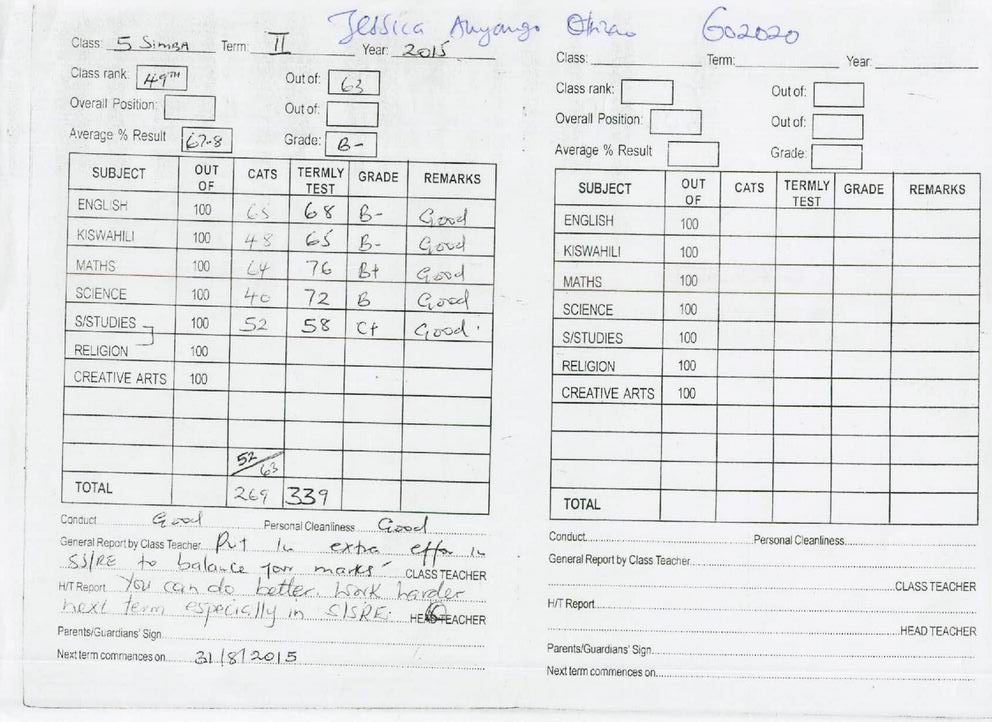 Jessica Anyango Otieno G02020
Class: 5 Simba Term: II Year: 2015
Class rank: 49TH Out of: 63
Overall Position: Out of:
Average % Result 67.8 Grade: B-
SUBJECT OUT OF CATS TERMLY TEST GRADE REMARKS
ENGLISH 100 65 68 B- Good
KISWAHILI 100 48 65 B- Good
MATHS 100 64 76 B+ Good
SCIENCE 100 40 72 B Good
S/STUDIES 100 52 58 C+ Good
RELIGION 100
CREATIVE ARTS 100
52/63
TOTAL 269 339
Conduct Good Personal Cleanliness Good
General Report by Class Teacher Put in extra effor in
SS/RE to balance your marks CLASS TEACHER
H/T Report You can do better. Work harder
next term especially in S/SRE. HEAD TEACHER
Parents/Guardians' Sign
Next term commences on 31/8/2015
Class: Term: Year:
Class rank: Out of:
Overall Position: Out of:
Average % Result Grade:
SUBJECT OUT OF CATS TERMLY TEST GRADE REMARKS
ENGLISH 100
KISWAHILI 100
MATHS 100
SCIENCE 100
S/STUDIES 100
RELIGION 100
CREATIVE ARTS 100
TOTAL
Conduct Personal Cleanliness
General Report by Class Teacher
CLASS TEACHER
H/T Report
HEAD TEACHER
Parents/Guardians' Sign
Next term commences on